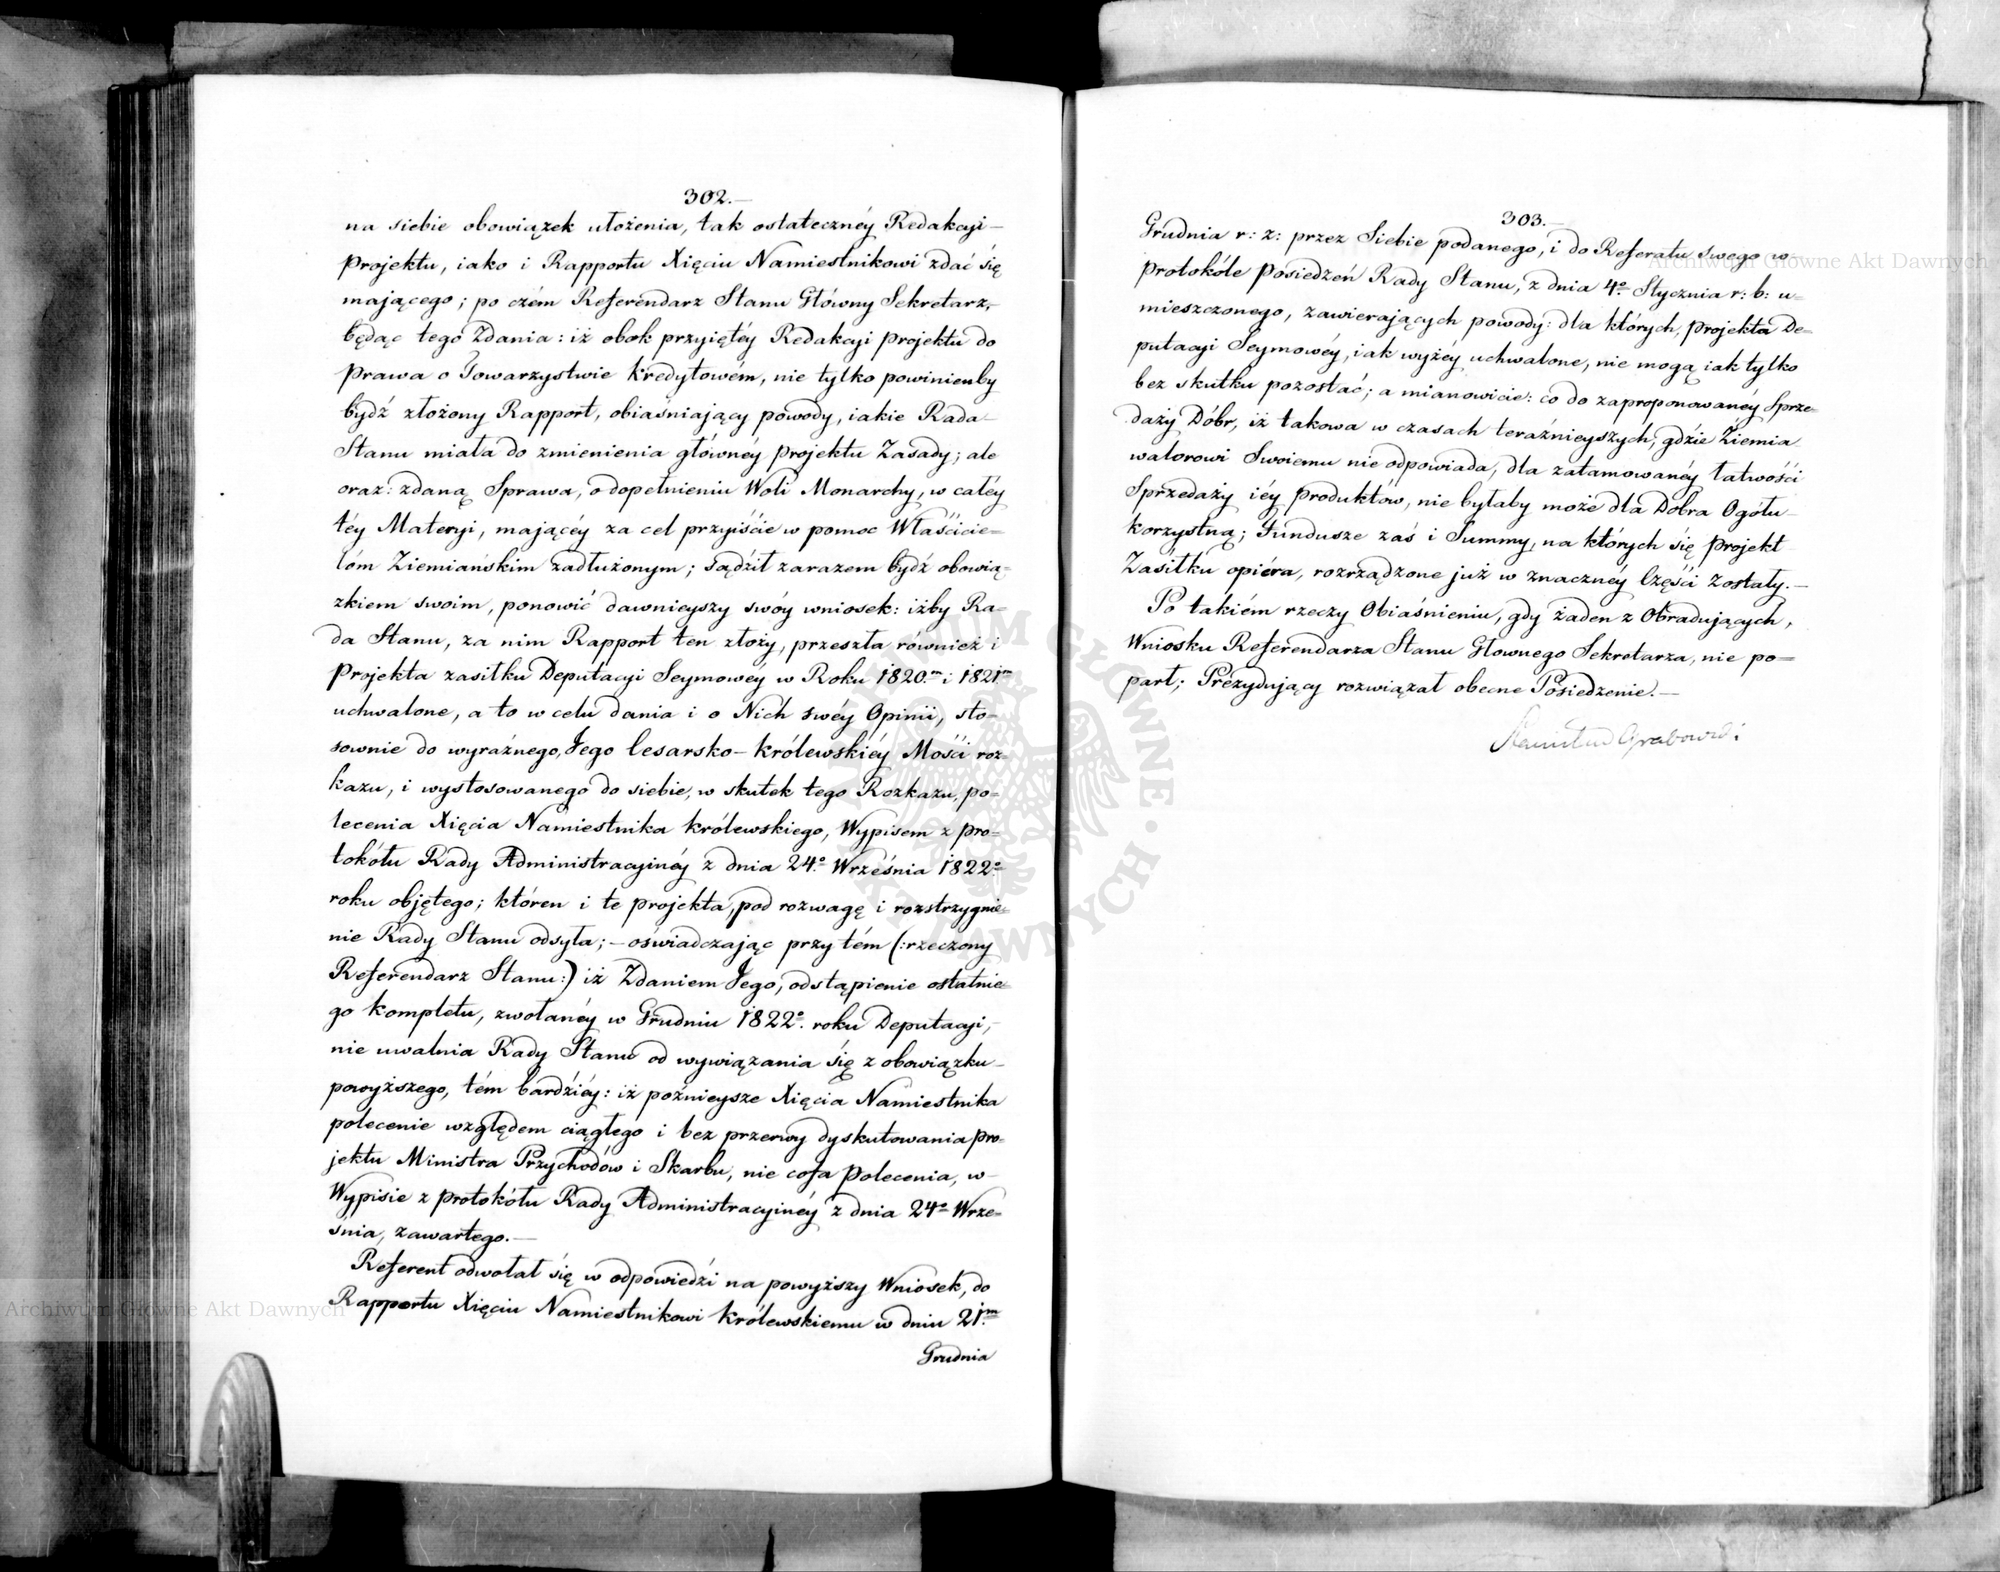 302.—
na siebie obowiązek ułożenia, tak ostatecznéy Redakcyi—
Projektu, iako i Rapportu Xięciu Namiestnikowi zdać się
mającego; po czém Referendarz Stanu Główny Sekretarz,
będąc tego Zdania: iż obok przyiętéy Redakcyi projektu do
Prawa o Towarzystwie kredytowém, nie tylko powinienby
bydź złożony Rapport, obiaśniający powody, iakie Rada—
Stanu miała do zmienienia głównéy projektu Zasady; ale
oraz: zdaną Sprawa, o dopełnieniu Woli Monarchy, w całéy
téy Materyi, mającéy za cel przyiście w pomoc Właścicie=
lóm Ziemiańskim zadłużonym; sądził zarazem bydź obowią=
zkiem swoim, ponowić dawnieyszy swóy wniosek: iżby Ra=
da Stanu, za nim Rapport ten złoży, przeszła również i
Projekta zasiłku Deputacyi Seymowéy w Roku 1820.m i 1821.m
uchwalone, a to w celu dania i o Nich swéy Opinii, sto=
sownie do wyraźnego, Jego Cesarsko-Królewskiéy Mości roz=
kazu, i wystosowanego do siebie, w skutek tego Rozkazu, po=
lecenia Xięcia Namiestnika Królewskiego, Wypisem z pro=
tokółu Rady Administracyinéy z dnia 24.o Września 1822.o
roku objętego; któren i te projekta, pod rozwagę i rozstrzygnie=
nie Rady Stanu odsyła;—oświadczając przy tém (:rzeczony
Referendarz Stanu:) iż Zdaniem Jego, odstąpienie ostatnie=
go kompletu, zwołanéy w Grudniu 1822.o roku Deputacyi,—
nie uwalnia Rady Stanu od wywiązania się z obowiązku—
powyższego, tém bardźiéy: iż poźnieysze Xięcia Namiestnika
polecenie względem ciągłego i bez przerwy dyskutowania pro=
jektu Ministra Przychodów i Skarbu, nie cofa Polecenia, w—
Wypisie z protokółu Rady Administracyinéy z dnia 24.o Wrze=
śnia, zawartego.—
Referent odwołał się w odpowiedźi na powyższy Wniosek, do
Rapportu Xięciu Namiestnikowi Królewskiemu w dniu 21.m
Grudnia
303.—
Grudnia r: z: przez Siebie podanego, i do Referatu swego w—
Protokóle Posiedzeń Rady Stanu, z dnia 4.o Stycznia r: b: u=
mieszczonego, zawierających powody: dla których, projekta De=
putacyi Seymowéy, iak wyżéy uchwalone, nie mogą iak tylko
bez skutku pozostać; a mianowicie: co do zaproponowanéy Sprze=
daży Dóbr, iż takowa w czasach teraźnieyszych, gdzie Ziemia
walorowi Swoiemu nie odpowiada, dla zatamowanéy łatwości
Sprzedaży iéy Produktów, nie byłaby może dla Dobra Ogółu—
korzystną; Fundusze zaś i Summy, na których się Projekt
Zasiłku opiéra, rozrządzone już w znacznéy Części zostały.—
Po takiém rzeczy Obiaśnieniu, gdy żaden z Obradujących,
Wniosku Referendarza Stanu Głownego Sekretarza, nie po=
parł; Prezydujący rozwiązał obecne Posiedzenie.—
Stanisław Grabowski
Archiwum Główne Akt Dawnych
Archiwum Główne Akt Dawnych
ARCHIWUM GŁÓWNE AKT DAWNYCH